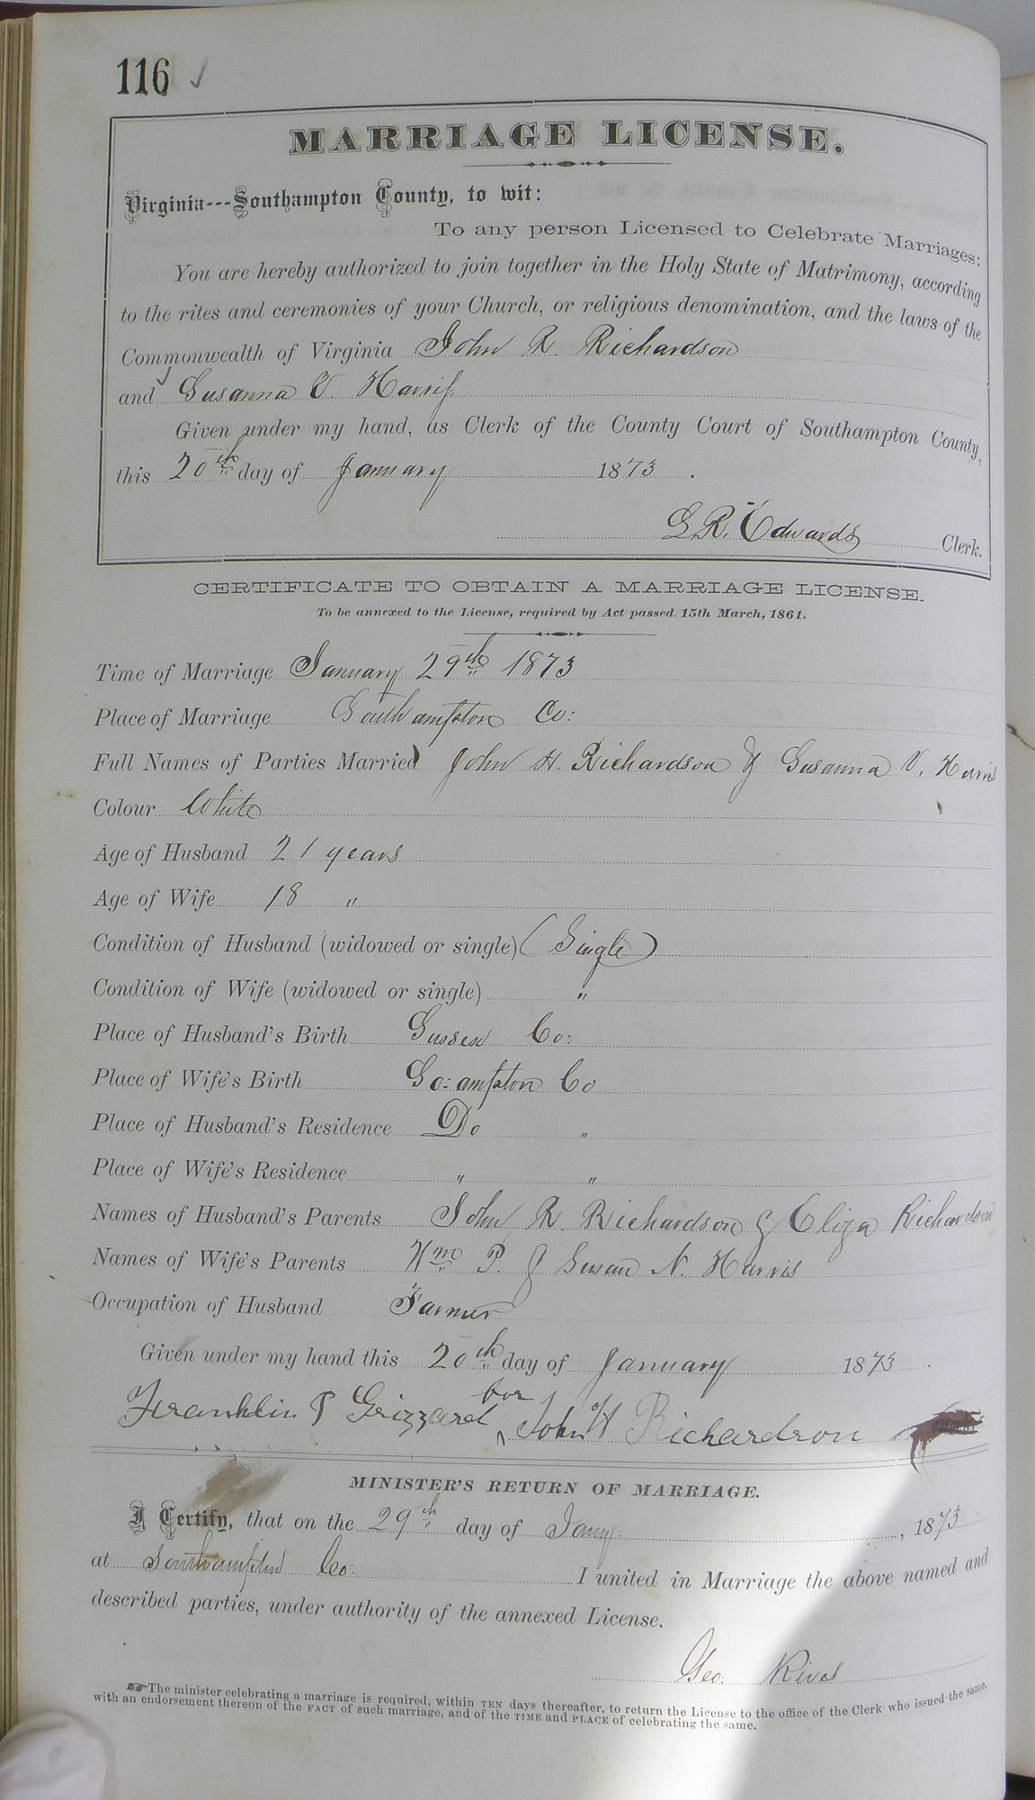 116 ✓
MARRIAGE LICENSE.
Virginia---Southampton County, to wit:
To any person Licensed to Celebrate Marriages:
You are hereby authorized to join together in the Holy State of Matrimony, according
to the rites and ceremonies of your Church, or religious denomination, and the laws of the
Commonwealth of Virginia John R. Richardson
and Susanna V. Harris
Given under my hand, as Clerk of the County Court of Southampton County,
this 20th day of January 1873.
L R. Edwards Clerk.
CERTIFICATE TO OBTAIN A MARRIAGE LICENSE.
To be annexed to the License, required by Act passed 15th March, 1861.
Time of Marriage January 29th 1873
Place of Marriage Southampton Co:
Full Names of Parties Married John H. Richardson & Susanna V. Harris
Colour White
Age of Husband 21 years
Age of Wife 18 "
Condition of Husband (widowed or single) (Single)
Condition of Wife (widowed or single) "
Place of Husband's Birth Sussex Co:
Place of Wife's Birth So:ampton Co
Place of Husband's Residence Do "
Place of Wife's Residence " "
Names of Husband's Parents John R. Richardson & Eliza Richardson
Names of Wife's Parents Wm P. & Susan N. Harris
Occupation of Husband Farmer
Given under my hand this 20th day of January 1873.
Franklin P Grizzard for John H Richardson
MINISTER'S RETURN OF MARRIAGE.
I Certify, that on the 29th day of Jany , 1873
at Southampton Co: I united in Marriage the above named and
described parties, under authority of the annexed License.
Geo. Rives
The minister celebrating a marriage is required, within TEN days thereafter, to return the License to the office of the Clerk who issued the same,
with an endorsement thereon of the FACT of such marriage, and of the TIME and PLACE of celebrating the same.